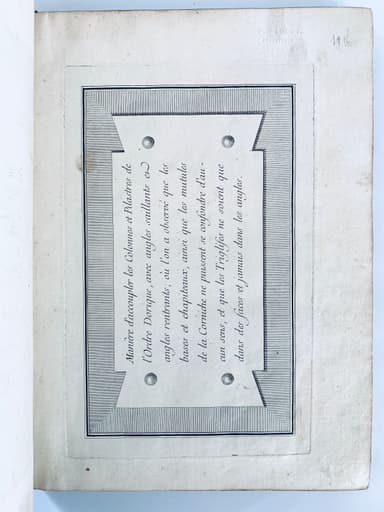 Manière d'accoupler les Colonnes et Pilastres de
l'Ordre Dorique, avec angles saillants et
angles rentrants, ou l'on a observé que les
bases et chapiteaux, ainsi que les mutules
de la Corniche ne pussent se confondre d'au-
cun sens, et que les Triglifes ne soient que
dans des faces et jamais dans les angles.